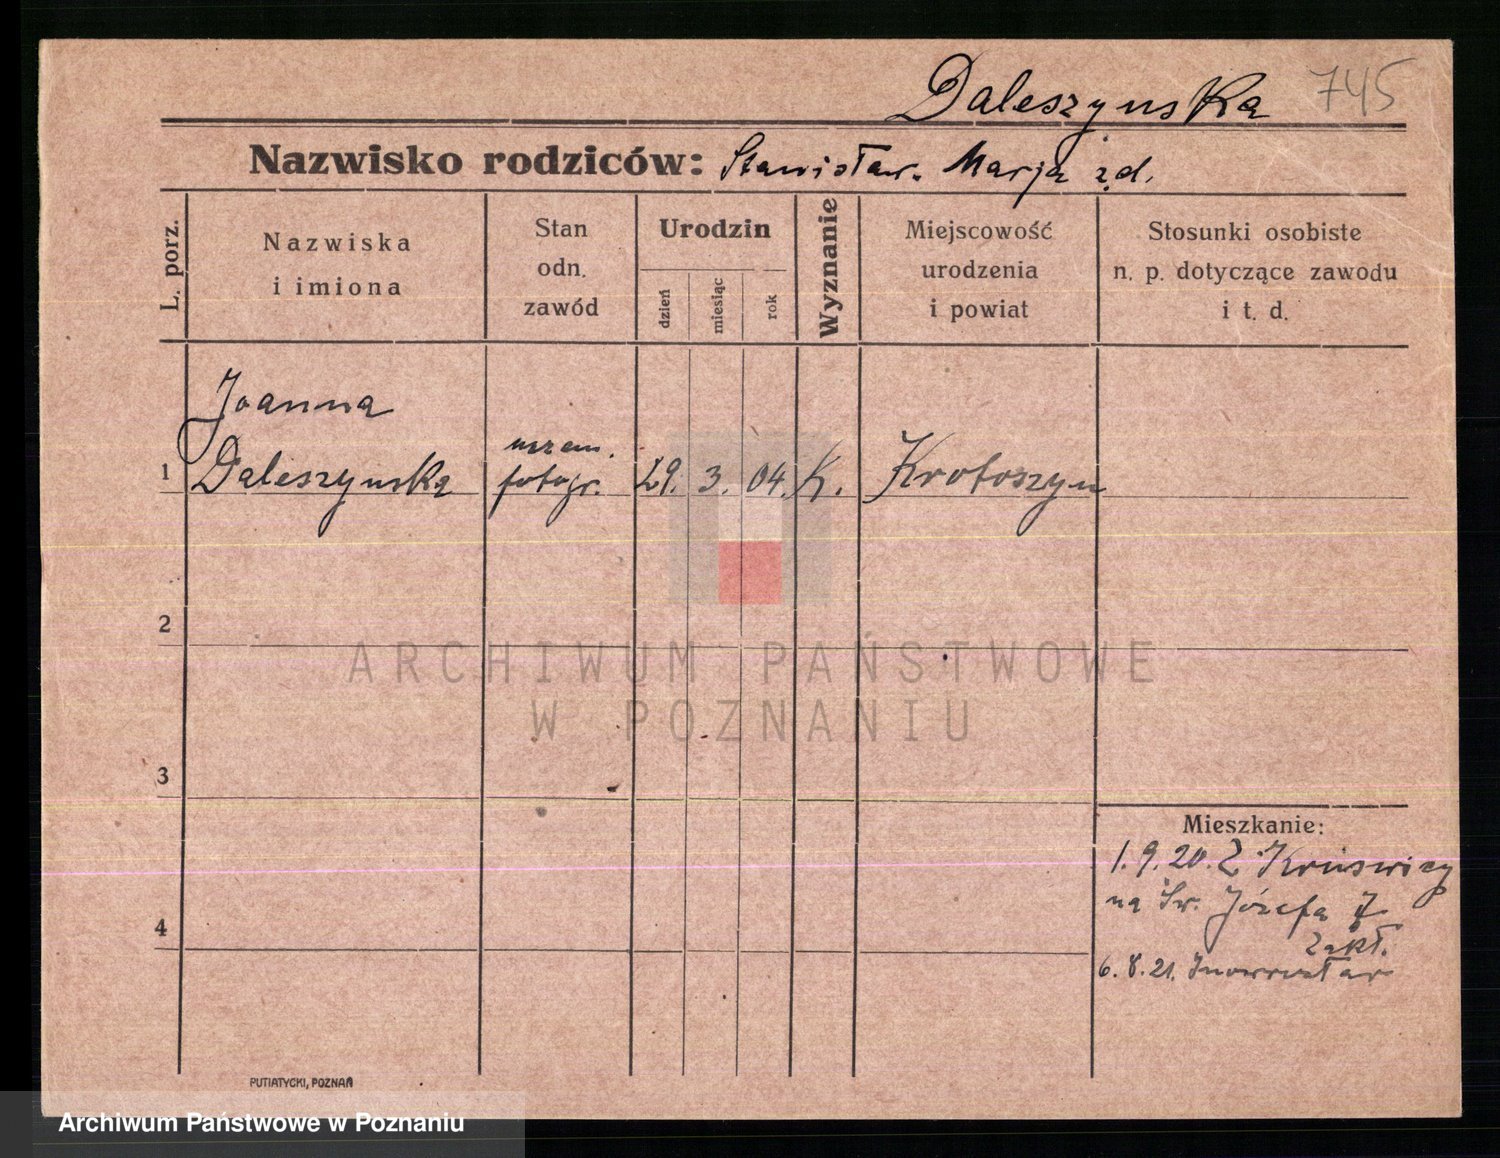 Daleszynska 745
Nazwisko rodziców: Stanisław. Marja z.d.
L. porz.
Nazwiska
i imiona
Stan
odn.
zawód
Urodzin
dzień
miesiąc
rok
Wyznanie
Miejscowość
urodzenia
i powiat
Stosunki osobiste
n. p. dotyczące zawodu
i t. d.
Joanna
uczen.
1 Daleszynska fotogr. 29. 3. 04. K. Krotoszyn
2
ARCHIWUM PAŃSTWOWE
W POZNANIU
3
Mieszkanie:
1.9.20. Z Kruswicy
na Św. Józefa
4
Zakł.
6.8.21. Inowrocław
PUTIATYCKI, POZNAŃ
Archiwum Państwowe w Poznaniu